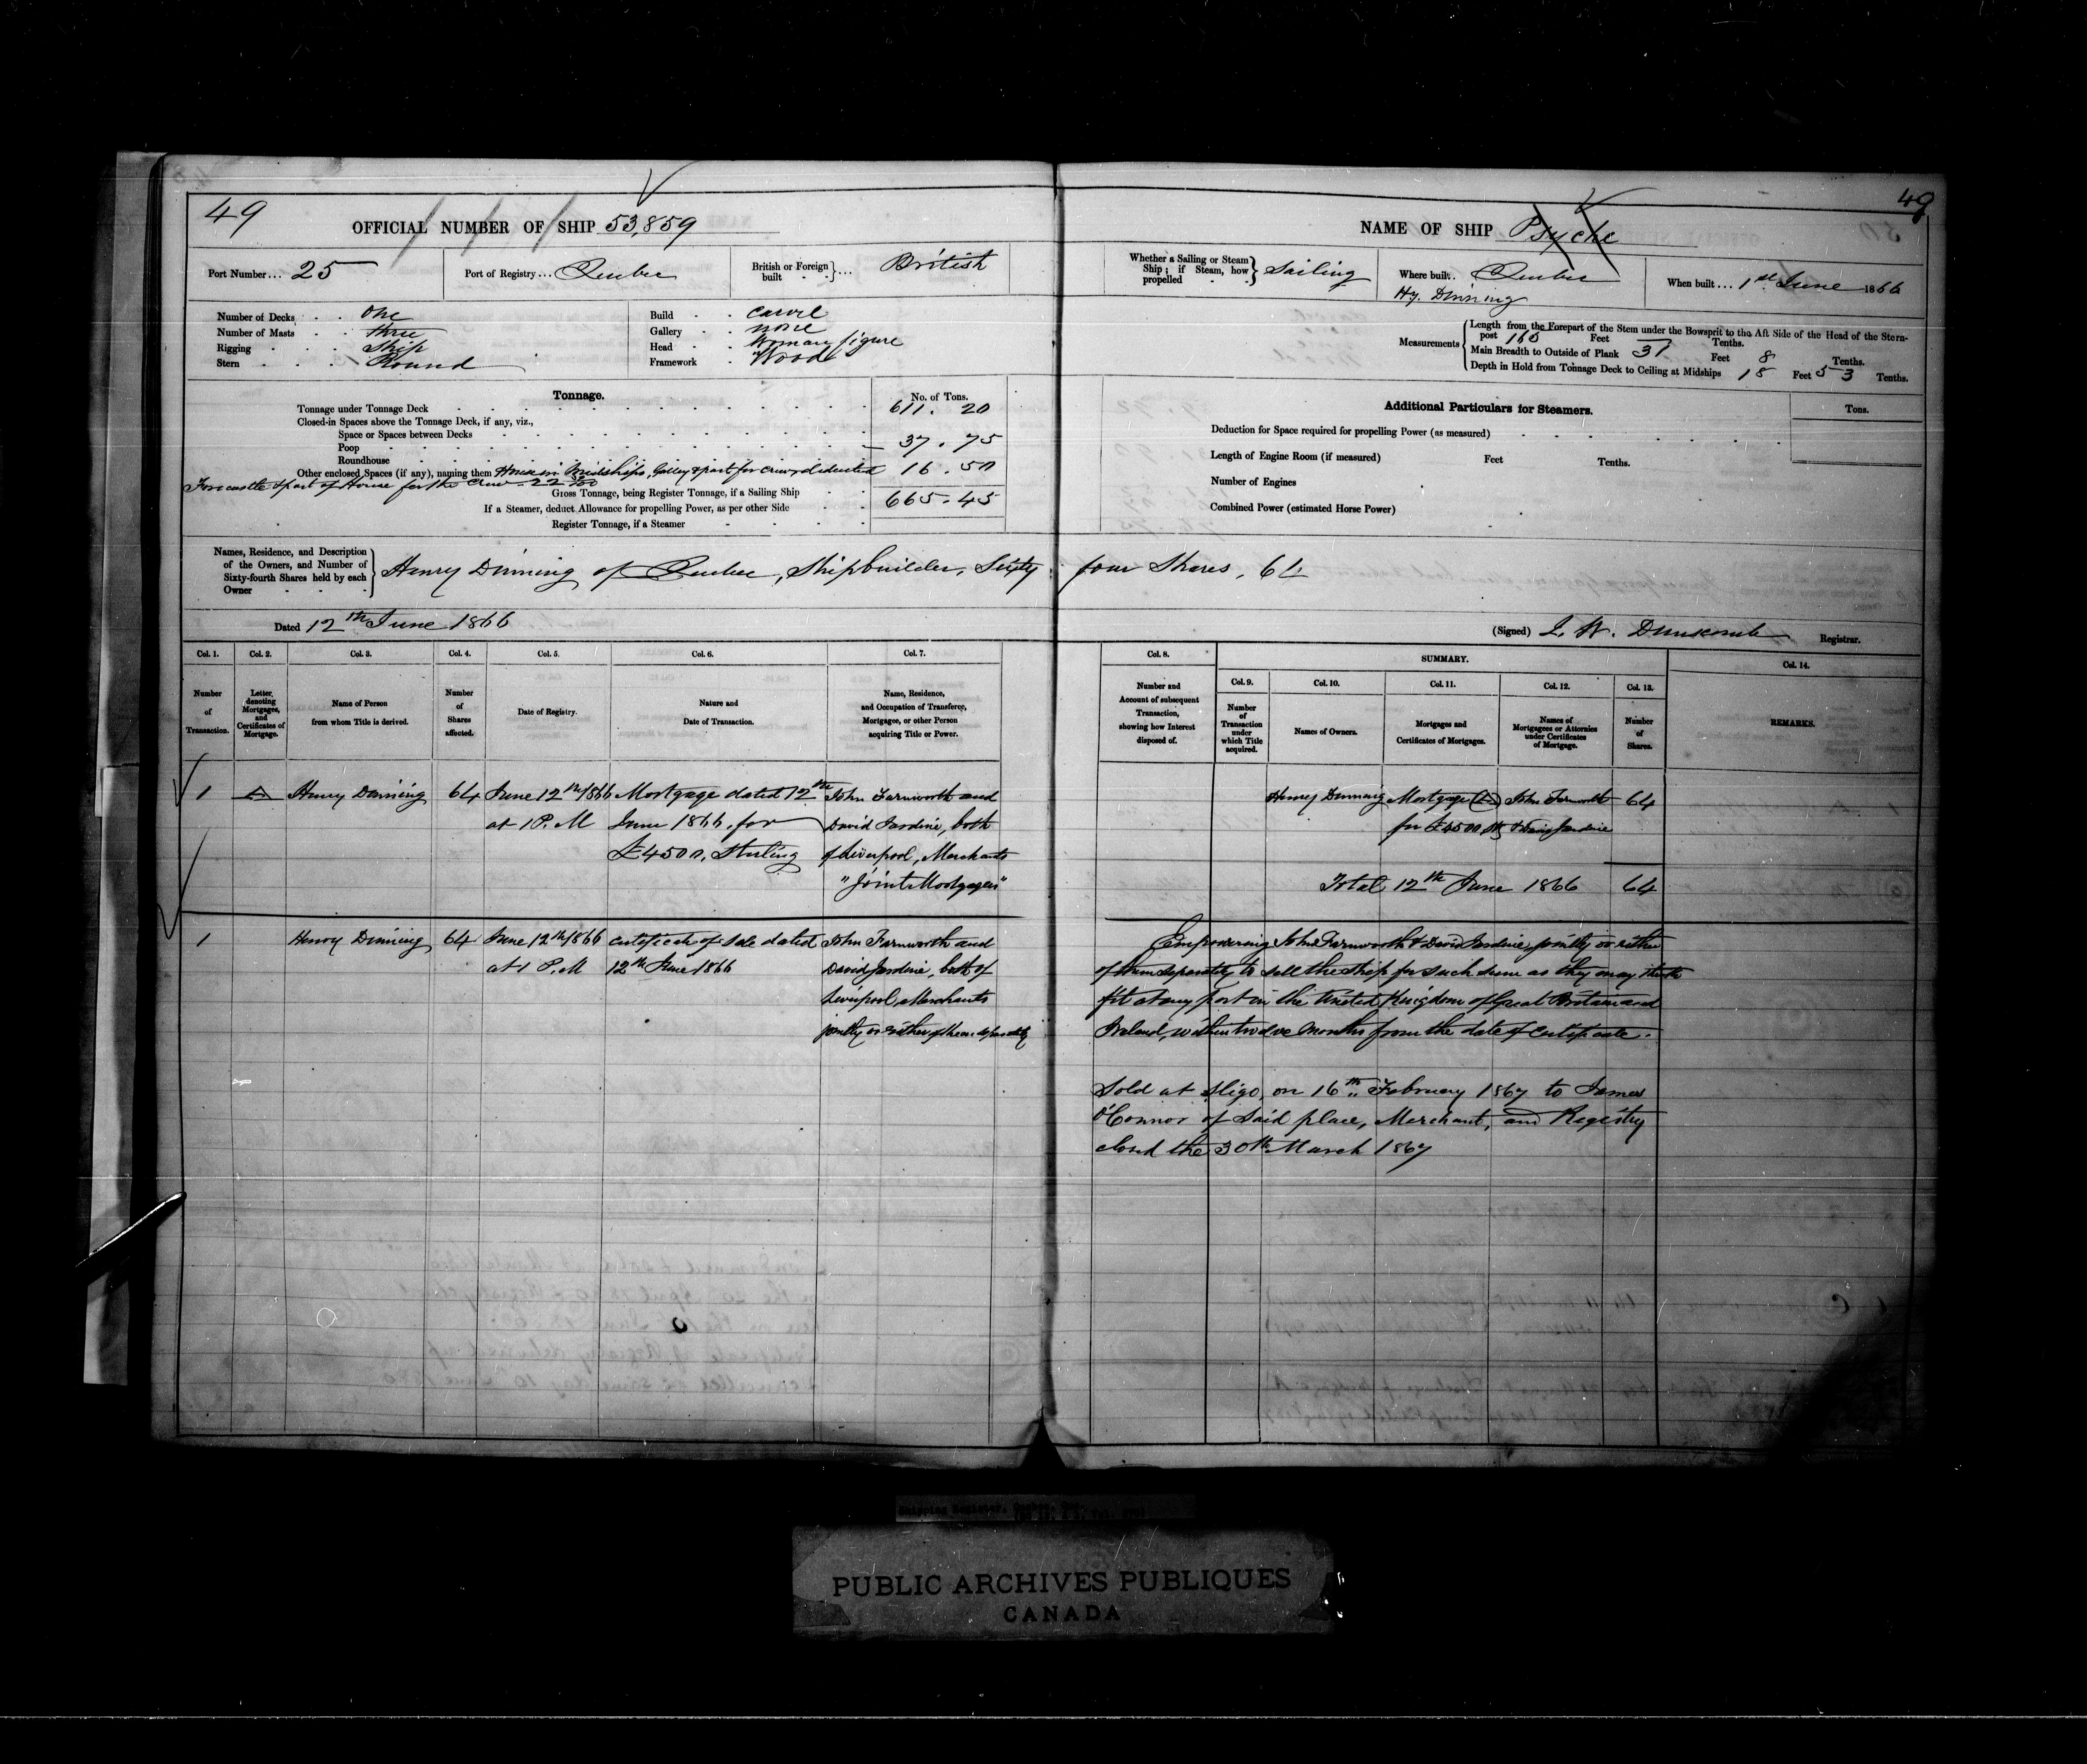 49
OFFICIAL NUMBER OF SHIP 53,859
Port Number... 25
Port of Registry... Quebec
British or Foreign built } ... British
Number of Decks . . One
Number of Masts . . Three
Rigging . . . Ship
Stern . . . Round
Build . . Carvel
Gallery . . none
Head . . Woman figure
Framework . Wood
Tonnage.
No. of Tons.
Tonnage under Tonnage Deck 611. 20
Closed-in Spaces above the Tonnage Deck, if any, viz.,
Space or Spaces between Decks
Poop 37. 75
Roundhouse
Other enclosed Spaces (if any), naming them House in Midships, Galley & part for Crew deducted 16. 50
Forecastle & part of House for the Crew
Gross Tonnage, being Register Tonnage, if a Sailing Ship 665. 45
If a Steamer, deduct Allowance for propelling Power, as per other Side
Register Tonnage, if a Steamer
Names, Residence, and Description of the Owners, and Number of Sixty-fourth Shares held by each Owner } Henry Dinning of Quebec, Shipbuilder, Sixty four Shares, 64
Dated 12th June 1866
49
NAME OF SHIP Psyche
Whether a Sailing or Steam Ship; if Steam, how propelled } Sailing
Where built.. Quebec
Hy. Dinning
When built... 1st June 1866
Measurements
Length from the Forepart of the Stem under the Bowsprit to the Aft Side of the Head of the Stern-
post 160 Feet Tenths.
Main Breadth to Outside of Plank 31 Feet 8 Tenths.
Depth in Hold from Tonnage Deck to Ceiling at Midships 18 Feet 53 Tenths.
Additional Particulars for Steamers.
Tons.
Deduction for Space required for propelling Power (as measured)
Length of Engine Room (if measured) Feet Tenths.
Number of Engines
Combined Power (estimated Horse Power)
(Signed) J. W. Dunscomb Registrar.
Col. 1. Col. 2. Col. 3. Col. 4. Col. 5. Col. 6. Col. 7.
Number of Transaction.
Letter, denoting Mortgages, and Certificates of Mortgage.
Name of Person from whom Title is derived.
Number of Shares affected.
Date of Registry.
Nature and Date of Transaction.
Name, Residence, and Occupation of Transferee, Mortgagee, or other Person acquiring Title or Power.
Col. 8.
Number and Account of subsequent Transaction, showing how Interest disposed of.
SUMMARY.
Col. 9. Col. 10. Col. 11. Col. 12. Col. 13.
Number of Transaction under which Title acquired.
Names of Owners.
Mortgages and Certificates of Mortgages.
Names of Mortgagees or Attornies under Certificates of Mortgage.
Number of Shares.
Col. 14.
REMARKS.
1 A Henry Dinning 64 June 12th/1866 Mortgage dated 12th John Farnworth and
at 1 P.M June 1866. for David Jardine, both
£4500, Sterling of Liverpool, Merchants
"Joint Mortgagees"
Henry Dinning Mortgage (A) John Farnworth 64
for £4500 Stg & David Jardine
Total 12th June 1866 64
1 Henry Dinning 64 June 12th/1866 Certificate of Sale dated John Farnworth and
at 1 P.M 12th June 1866 David Jardine, both of
Liverpool, Merchants
jointly or either of them separately
Empowering John Farnworth & David Jardine, jointly or either
of them separately to sell the ship for such sum as they may think
fit at any Port in the United Kingdom of Great Britain and
Ireland, within twelve months from the date of Certificate.
Sold at Sligo, on 16th February 1867 to James
O'Connor of said place, Merchant, and Registry
closed the 30th March 1867
PUBLIC ARCHIVES PUBLIQUES
CANADA